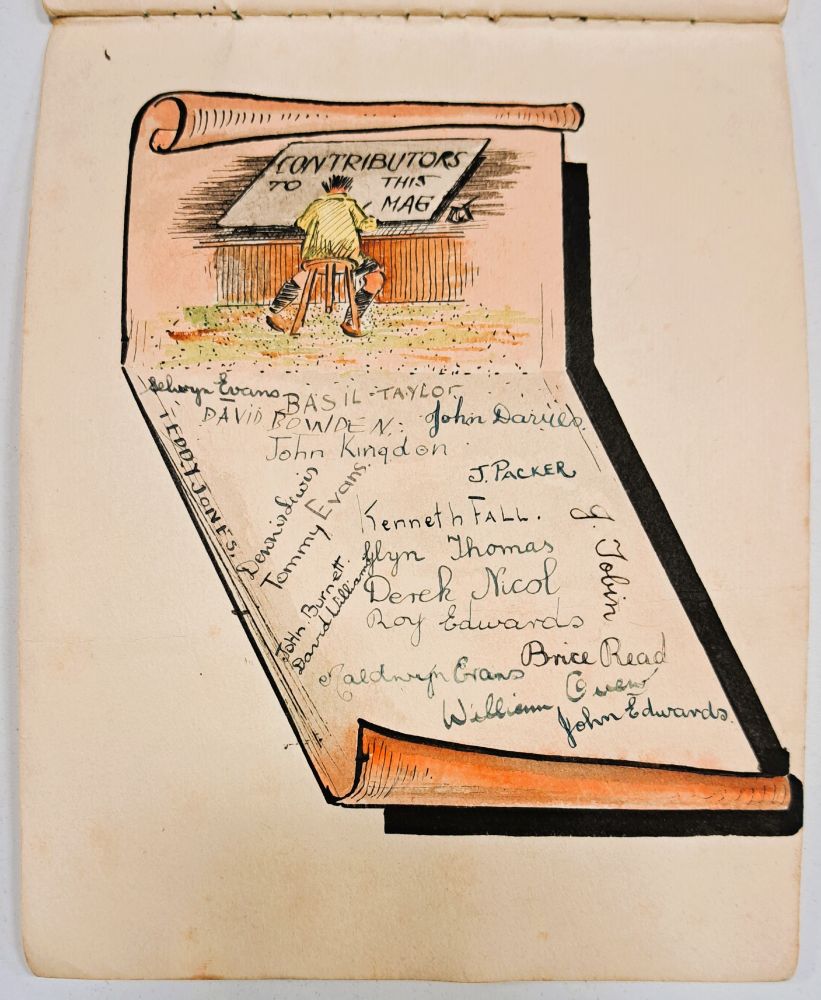 CONTRIBUTORS
TO THIS
MAG
Selwyn Evans
BASIL-TAYLOR
DAVID BOWDEN.
John Davies
John Kingdon
TEDDY JONES.
J. PACKER
Dennis Lewis
Tommy Evans.
Kenneth FALL.
J. Tobin
Glyn Thomas
Derek Nicol
John Burnett.
David Williams
Roy Edwards
Brice Read
Maldwyn Evans
William Owen
John Edwards.